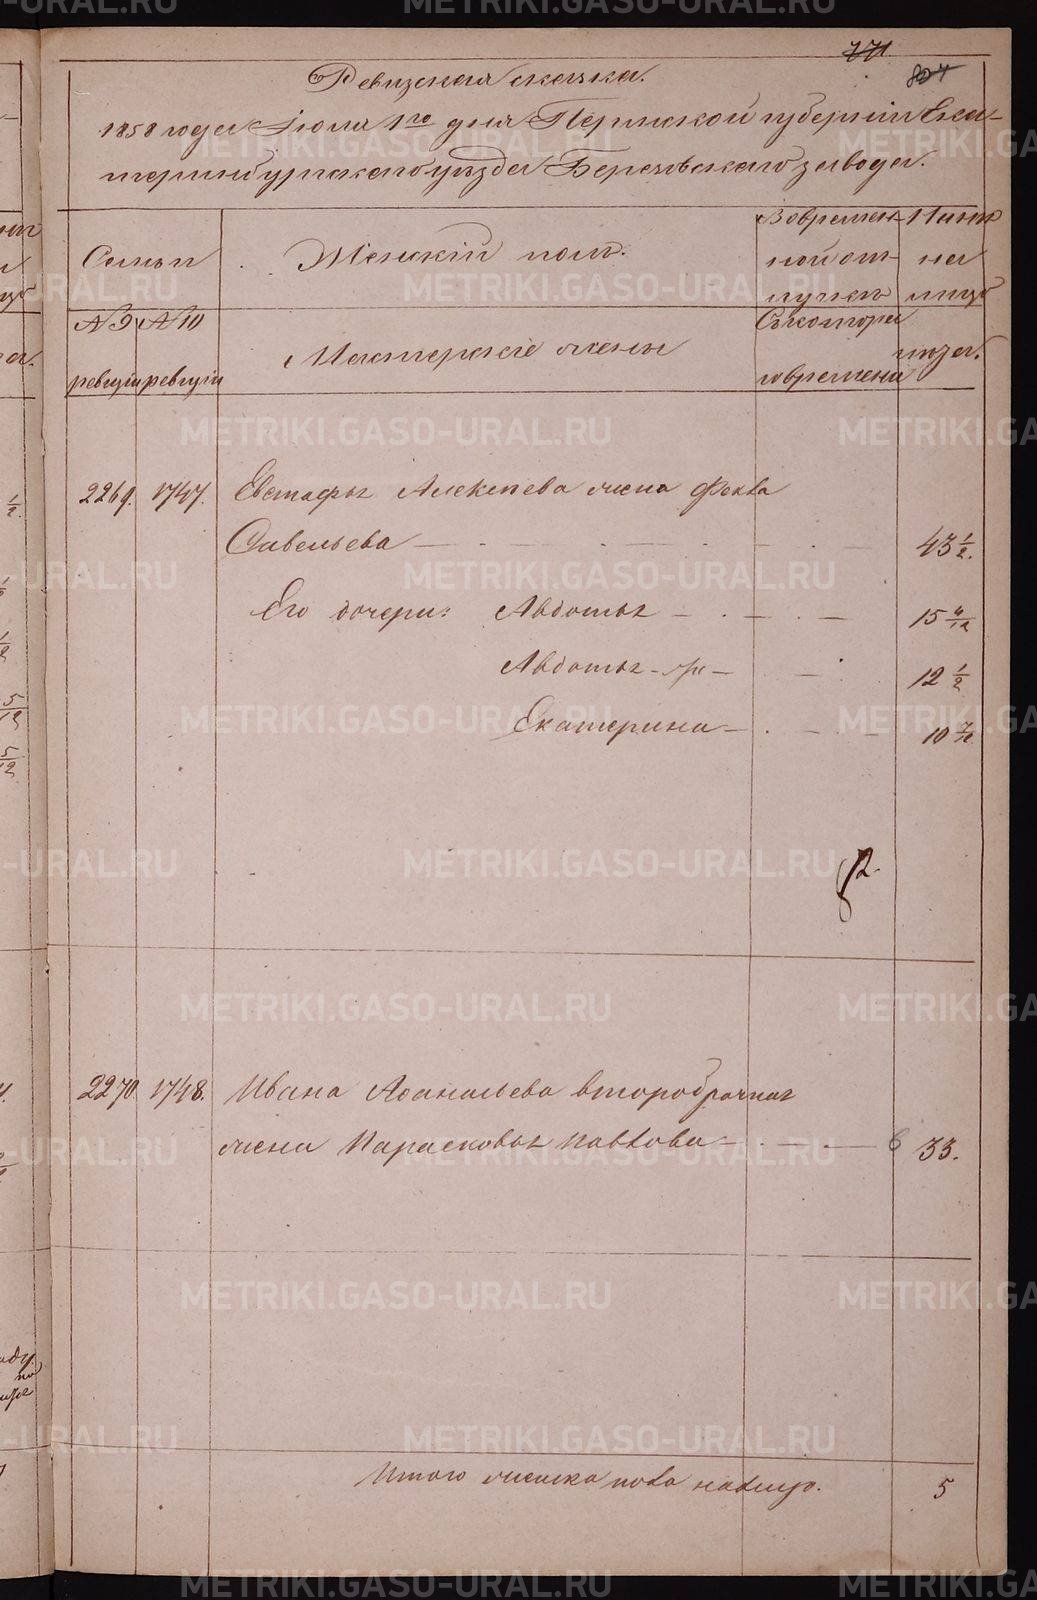 771
804
Ревизская сказка.
1858 года Іюля 1го дня Пермской губерніи Ека-
теринбургскаго уѣзда Березовскаго завода.
Семьи
Женскій полъ.
Во времен-
ной от-
лучкѣ
Нынѣ
на
лицо
№ 9
ревизіи
№ 10
ревизіи
Мастерскіе жены
Съ котора
го времени
лѣта.
2269. 1747. Евстафья Алексѣева жена Фекла
Савельева 43 1/2.
Его дочери: Авдотья 15 4/12
Авдотья 2я 12 1/2
Екатерина 10 7/12
2270. 1748. Ивана Афанасьева второбрачная
жена Парасковья Павлова 33.
Итого женска пола налицо. 5
METRIKI.GASO-URAL.RU